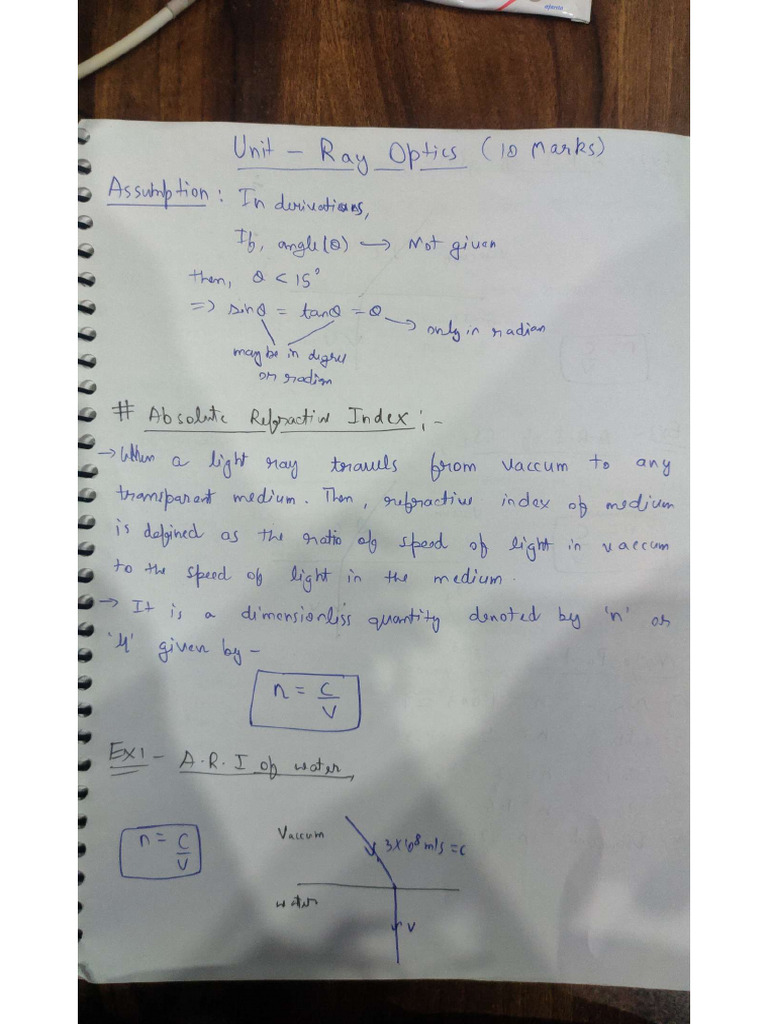 Unit - Ray Optics (10 Marks)
Assumption : In derivations,
If, angle(θ) → Not given
then, θ < 15°
=> sinθ = tanθ = θ → only in radian
may be in degree
or radian
# Absolute Refractive Index :-
→ When a light ray travels from vaccum to any
transparant medium. Then, refractive index of medium
is defined as the ratio of speed of light in vaccum
to the speed of light in the medium.
→ It is a dimensionless quantity denoted by 'n' or
'μ' given by -
n = C/V
Ex:- A.R.I of water,
n = C/V
Vaccum
3×10⁸ m/s = c
water
v